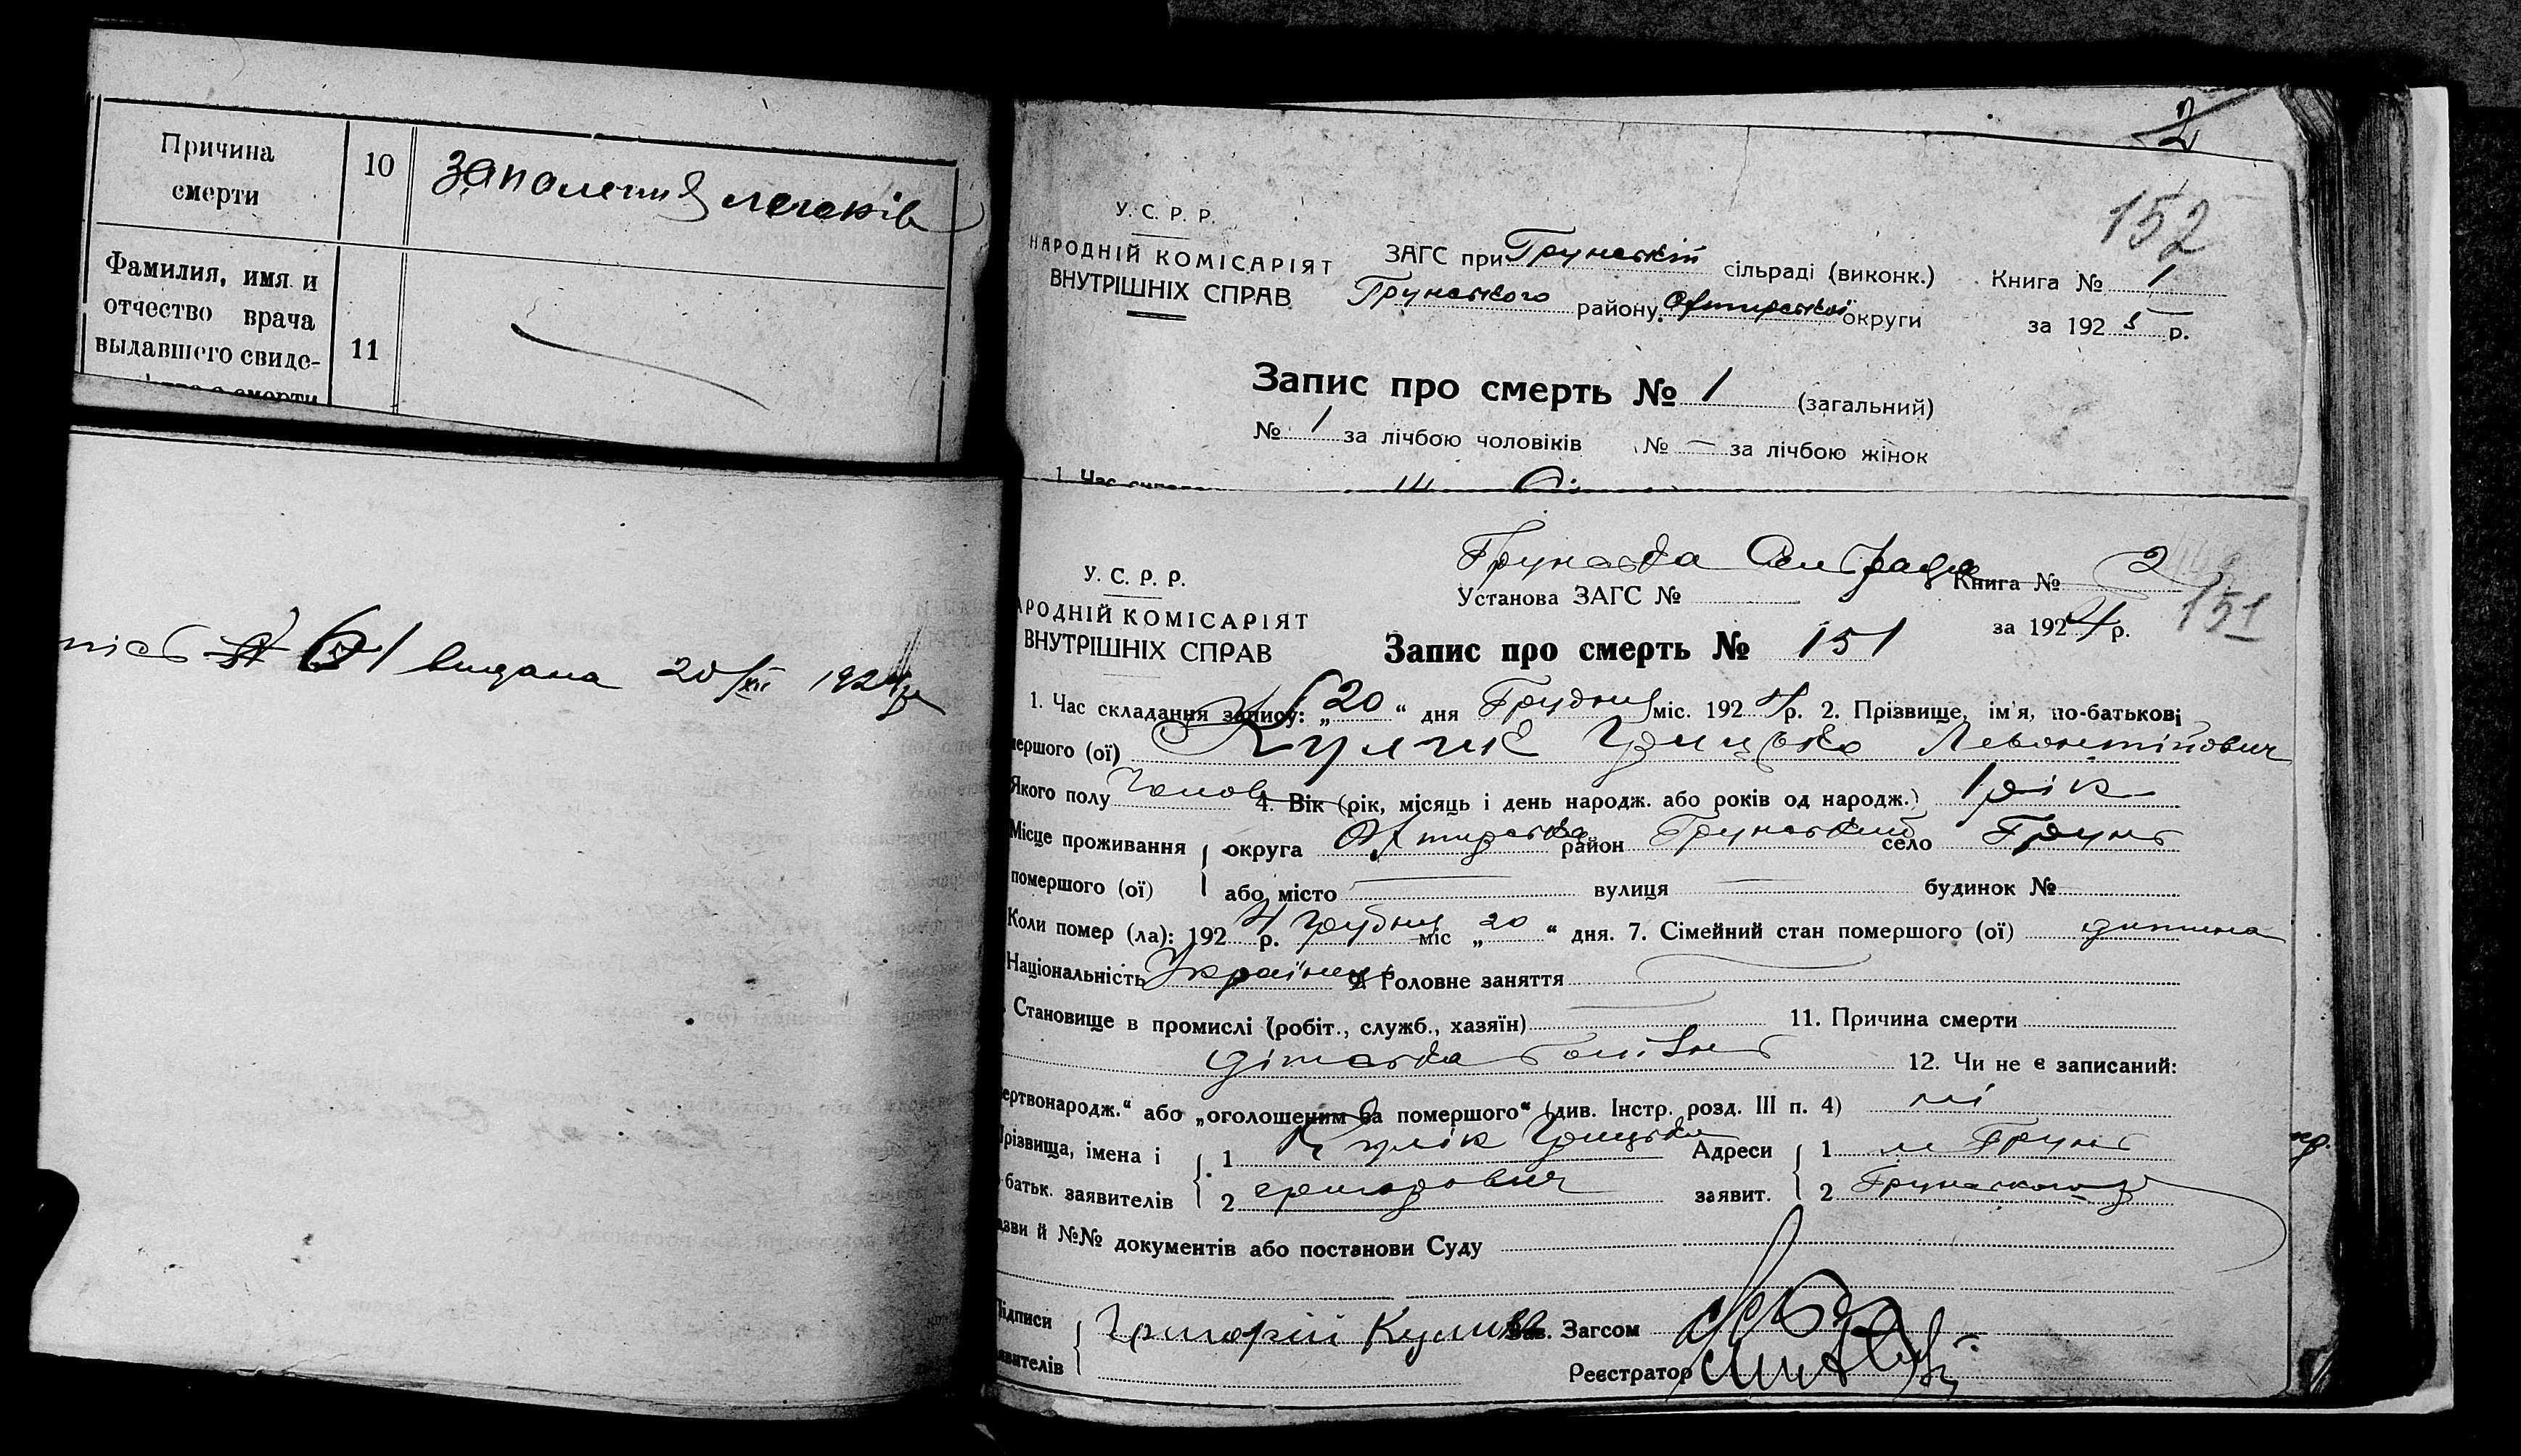 Причина
смерти
10
запалення легенів
Фамилия, имя и
отчество врача
выдавшего свиде-
11
смерти
видана 20/XII 1924 р
2
152
У. С. Р. Р.
НАРОДНІЙ КОМІСАРІЯТ
ВНУТРІШНІХ СПРАВ
ЗАГС при Грунській сільраді (виконк.)
Грунського району Охтирської округи
Книга № 1
за 1925 р.
Запис про смерть № 1 (загальний)
№ 1 за лічбою чоловіків № — за лічбою жінок
1. Час
Грунська Сельрада
У. С. Р. Р.
АРОДНІЙ КОМІСАРІЯТ
ВНУТРІШНІХ СПРАВ
Установа ЗАГС №
Книга № 2
151
за 1924 р.
Запис про смерть № 151
1. Час складання запису: „20“ дня Грудня міс. 1924 р. 2. Прізвище, ім'я, по-батькові
мершого (ої) Кулик Грицько Левонтійович
Якого полу Чолов 4. Вік (рік, місяць і день народж. або років од народж.) 1 рік
Місце проживання округа Охтирська район Грунський село Грунь
помершого (ої) або місто вулиця будинок №
Коли помер (ла): 1924 р. Грудня міс „20“ дня. 7. Сімейний стан помершого (ої) дитина
Національність Українець 9. Головне заняття
Становище в промислі (робіт., служб., хазяїн) 11. Причина смерти
дітська болізнь 12. Чи не є записаний:
ертвонародж.“ або „оголошеним за помершого“ (див. Інстр. розд. III п. 4) ні
Прізвища, імена і 1 Кулік Грицько Адреси 1 м Грунь
батьк. заявителів 2 григорович заявит. 2 Грунського р
азви й №№ документів або постанови Суду
Підписи Григорій Кулик Зав. Загсом
явителів
Реєстратор